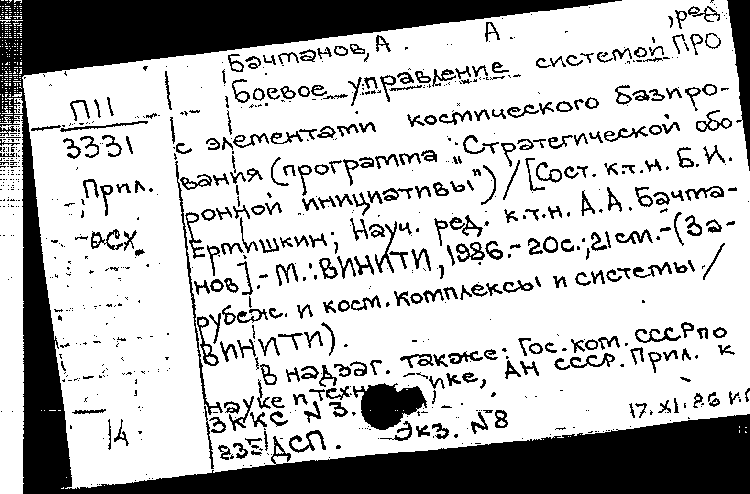 Бачманов, А. А. , ред
Боевое управление системой ПРО
с элементами космического базиро-
вания (программа "Стратегической обо-
ронной инициативы") / [Сост. к.т.н. Б.И.
Ертишкин; Науч. ред. к.т.н. А.А. Бачма-
нов]. - М.: ВИНИТИ, 1986. - 20с.; 21см. - (За-
рубеж. и косм. комплексы и системы /
ВИНИТИ).
В надзаг. также: Гос. ком. СССР по
науке и технике, АН СССР. Прил. к
ЭККС N 3.
ДСП. Экз. N8
17.XI.86
П11
3331
Прил.
осх.
14